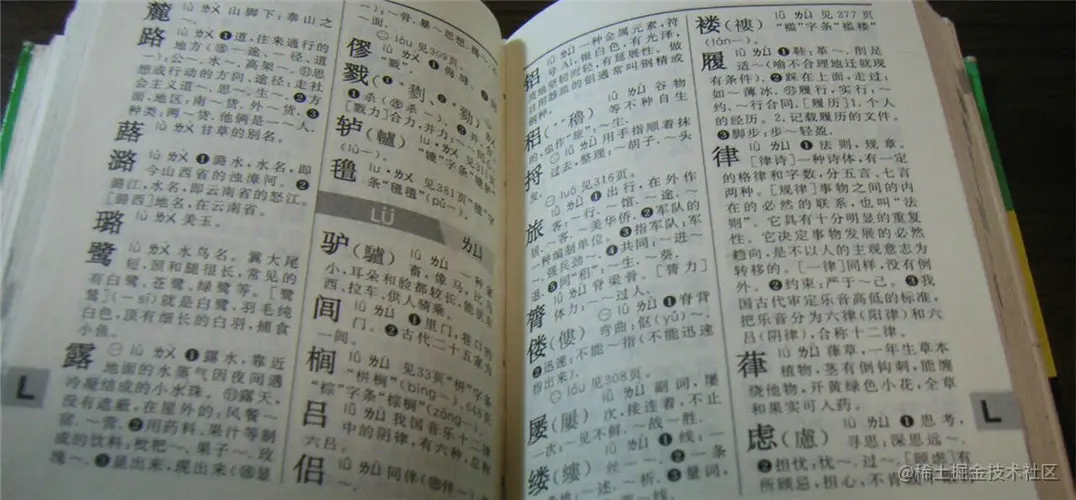 麓 lù ㄌㄨˋ 山脚下:泰山之~。
路 lù ㄌㄨˋ ❶道,往来通行的
地方(㊣一途、一径、道
一):公~。水~。高架~。㊀思
想或行动的方向、途径:走社
会主义道~。思~。生~。❷方
面,地区:南~货。外~货。❸
种类:两~货。他俩是一~人。
蕗 lù ㄌㄨˋ 甘草的别名。
潞 lù ㄌㄨˋ ❶潞水,水名,即
今山西省的浊漳河。❷
潞江,水名,即云南省的怒江。
[潞西]地名,在云南省。
璐 lù ㄌㄨˋ 美玉。
鹭 lù ㄌㄨˋ 水鸟名。翼大尾
短,颈和腿很长,常见的
有白鹭、苍鹭、绿鹭等。[鹭
鸶](-sī)就是白鹭,羽毛纯
白色,顶有细长的白羽,捕食
小鱼。
露 ㊀ lù ㄌㄨˋ ❶露水,靠近
地面的水蒸气因夜间遇
冷凝结成的小水珠。㊀露天,
没有遮蔽,在屋外的:风餐~
宿。~营。❷用药料、果汁等制
成的饮料:枇杷~。果子~。玫
瑰~。❸显出来,现出来
L
僇 lù
戮
❶杀
[戮力]合力,并力
轳(轤)
氇
条"氆氇"(pǔ-)。
LÜ ㄌㄩ
驴(驢) lǘ ㄌㄩˊ 一种家
畜,像马,比马
小,耳朵和脸都较长,能驮东
西、拉车、供人骑乘。
闾 lǘ ㄌㄩˊ ❶里门,巷口的
门。❷古代二十五家为
一闾。
榈 lǘ ㄌㄩˊ 见33页"栟"字条
"栟榈"(bīng-)、646页
"棕"字条"棕榈"(zōng-)。
吕 lǚ ㄌㄩˇ 我国音乐十二律
中的阴律,有六种,总称
六吕。
侣 lǚ ㄌㄩˇ 同伴
铝 lǚ ㄌㄩˇ 一种金属元素,符
号Al,银白色,有光泽,
质地坚韧而轻,有延展性。做
日用器皿的铝通常叫钢精或
钢种。
稆(穭) lǚ ㄌㄩˇ 谷物
等不种自生
的,也作"旅":~生。
捋 ㊀ lǚ ㄌㄩˇ 用手指顺着抹
过去,整理:~胡子。~头
发。
㊁ luō 见316页。
旅 lǚ ㄌㄩˇ ❶出行,在外作
客:~行。~馆。~途。~
居。~客。~美华侨。❷军队的
一种编制单位。❸指军队:军
~。强兵劲~。❹共同:~进~
退。❺同"稆":~生。~葵。
膂 lǚ ㄌㄩˇ 脊梁骨。[膂力]
体力:~~过人。
偻(僂) ㊀ lǚ ㄌㄩˇ ❶脊背
弯曲:伛(yǔ)~。
❷迅速:不能~指(不能迅速
指出来)。
㊁ lóu 见308页。
屡(屢) lǚ ㄌㄩˇ 副词,屡
次,接连着,不止
一次:~见不鲜。~战~胜。
缕(縷) lǚ ㄌㄩˇ ❶线:一
丝一~。❷一条
一条地:~述。~析。❸量词,
褛(褸) lǚ ㄌㄩˇ 见277页
"褴"字条"褴褛"
(lán-)。
履 lǚ ㄌㄩˇ ❶鞋:革~。削足
适~(喻不合理地迁就现
有条件)。❷踩在上面,走过:
如~薄冰。㊀履行,实行:~
约。~行合同。[履历]1.个人
的经历。2.记载履历的文件。
❸脚步:步~轻盈。
律 lǜ ㄌㄩˋ ❶法则,规章。
[律诗]一种诗体,有一定
的格律和字数,分五言、七言
两种。[规律]事物之间的内
在的必然的联系,也叫"法
则"。它具有十分明显的重复
性。它决定事物发展的必然
趋向,是不以人的主观意志为
转移的。[一律]同样,没有例
外。❷约束:严于~己。❸我
国古代审定乐音高低的标准,
把乐音分为六律(阳律)和六
吕(阴律),合称十二律。
葎 lǜ ㄌㄩˋ 葎草,一年生草本
植物,茎有倒钩刺,能缠
绕他物,开黄绿色小花,全草
和果实可入药。
虑(慮) lǜ ㄌㄩˋ ❶思考,
寻思:深思远~。
❷担忧:忧~。过~。[顾虑]有
所顾忌,担心,不肯
L
@稀土掘金技术社区